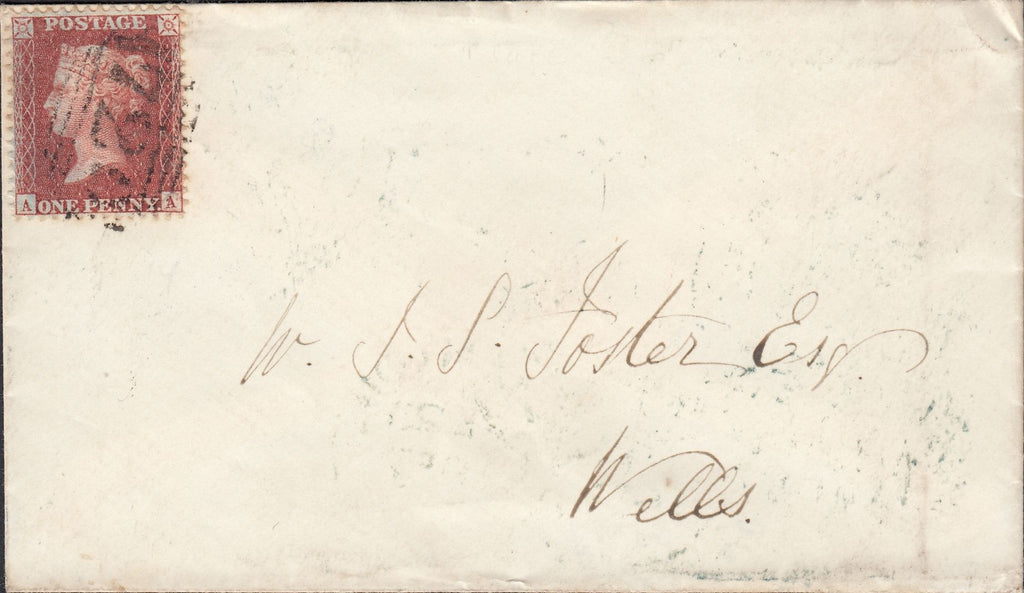 POSTAGE
A ONE PENNY A
W. J. S. Foster Esq.
Wells.